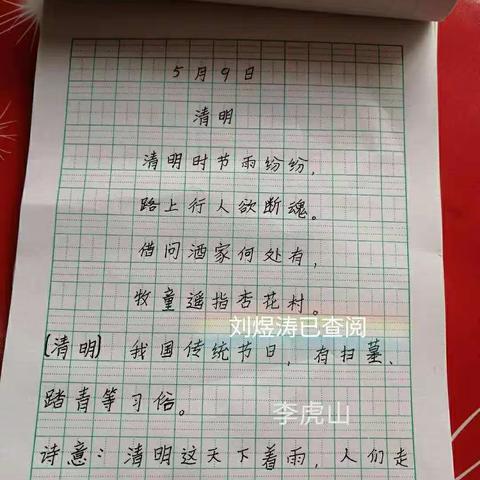 5月9日
清明
清明时节雨纷纷，
路上行人欲断魂。
借问酒家何处有，
牧童遥指杏花村。
刘煜涛已查阅
[清明] 我国传统节日，有扫墓、
踏青等习俗。
李虎山
诗意：清明这天下着雨，人们走